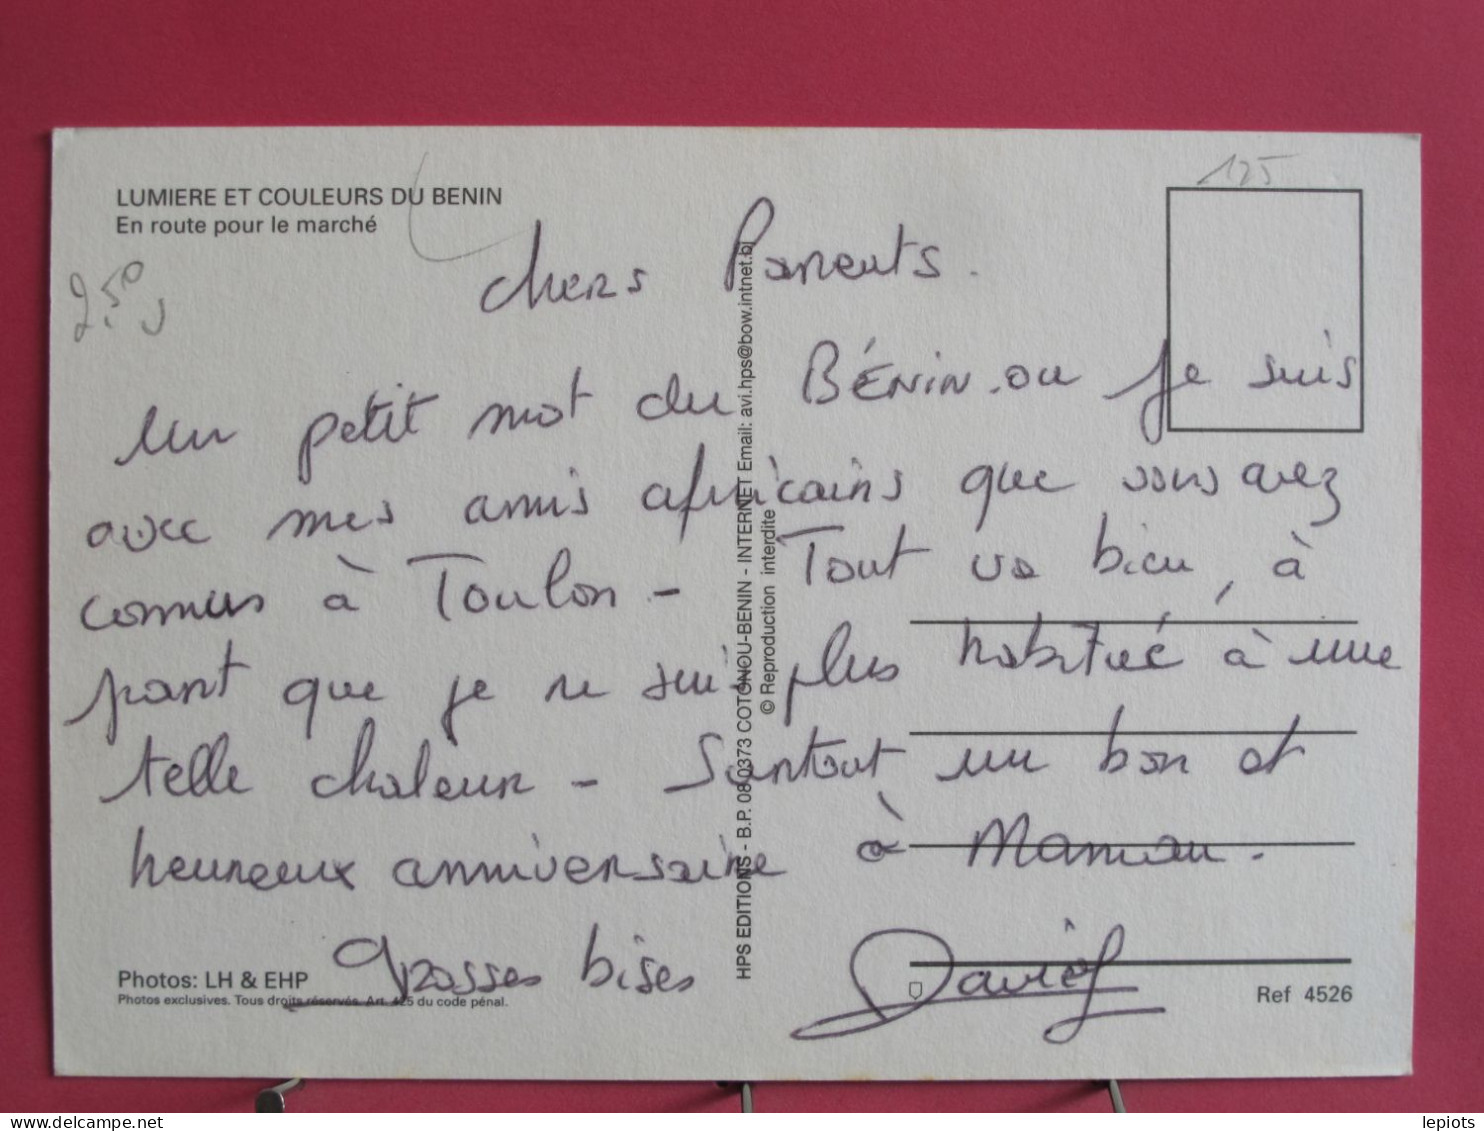 125
LUMIERE ET COULEURS DU BENIN
En route pour le marché
2,50
Chers Parents.
Un petit mot du BÉNIN. ou je suis
avec mes amis africains que vous avez
connus à Toulon - Tout va bien, à
part que je ne suis plus habitué à une
telle chaleur - Surtout un bon et
heureux anniversaire à Maman.
Grosses bises
HPS EDITIONS - B.P. 08 0373 COTONOU-BENIN - INTERNET Email: avi.hps@bow.intnet.bj
© Reproduction interdite
Photos: LH & EHP
Photos exclusives. Tous droits réservés. Art. 425 du code pénal.
Ref 4526
delcampe.net
lepiots